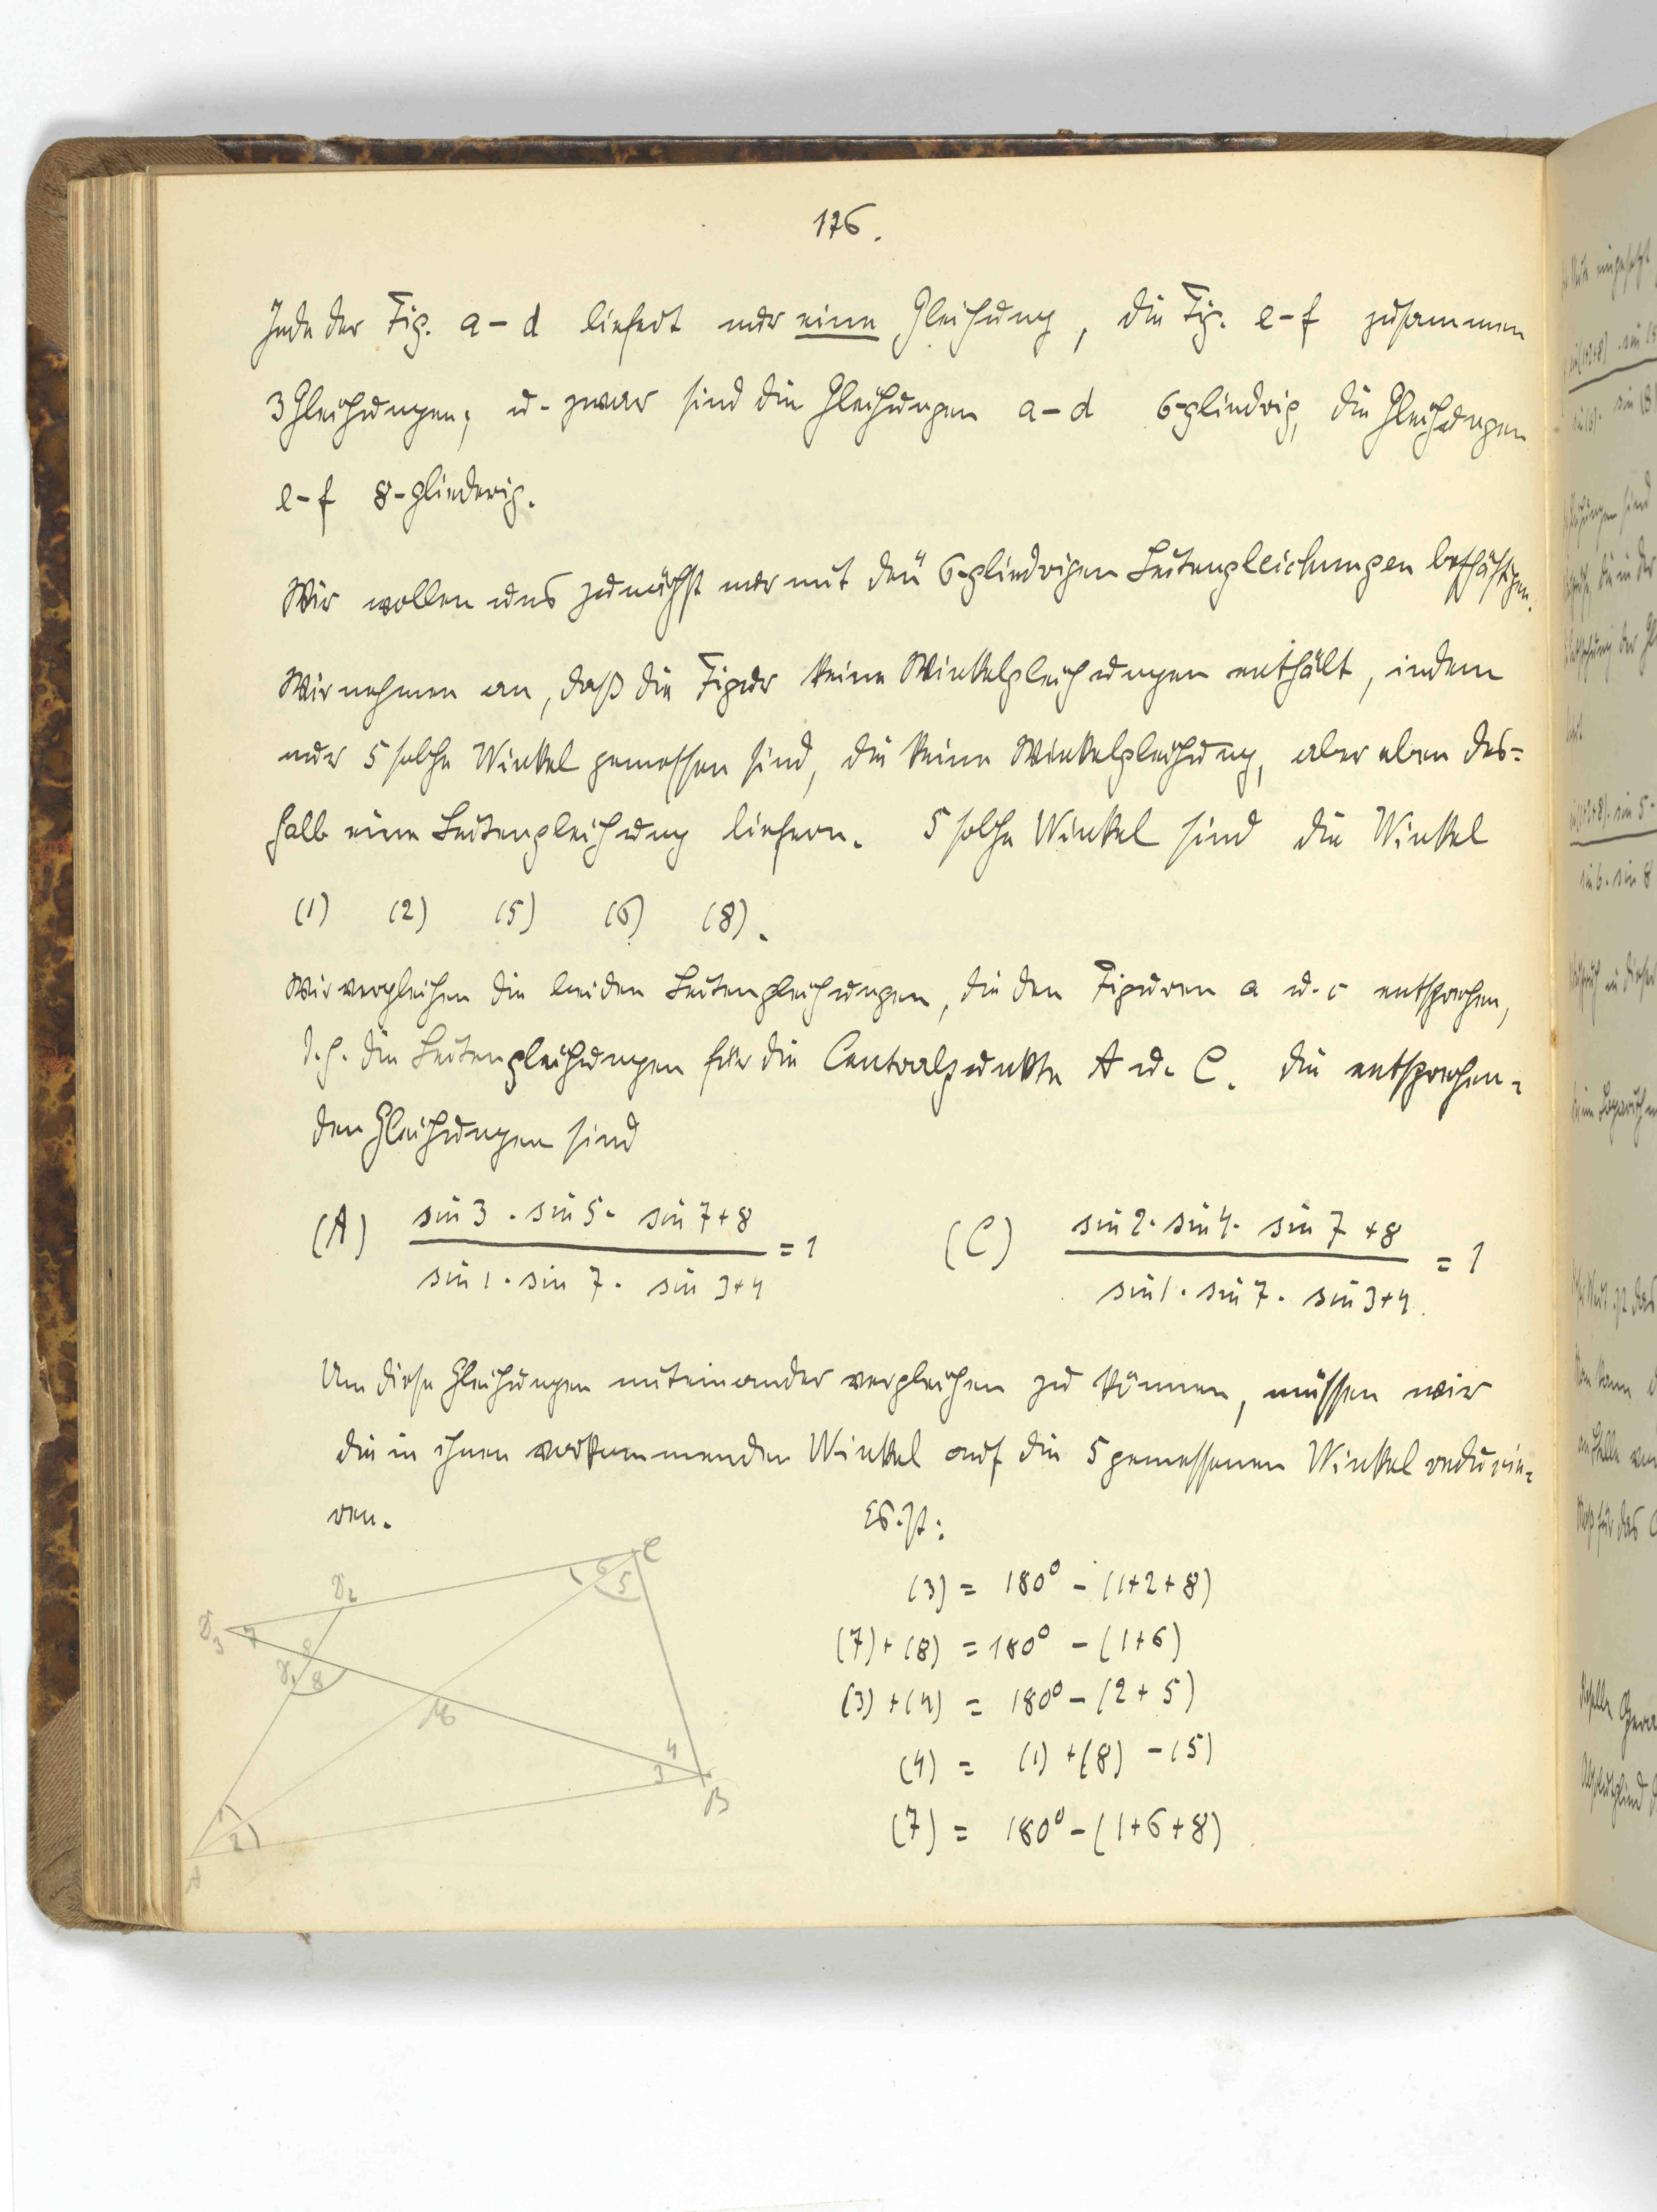 176.
Jede der Fig. a-d liefert nur eine Gleichung, die Fig. e-f zusammen
3 Gleichungen; u. zwar sind die Gleichungen a-d 6-gliedrig, die Gleichungen
e-f 8-gliederig.
Wir wollen uns zunächst nur mit den 6-gliedrigen Seitengleichungen beschäftigen.
Wir nehmen an, daß die Figur keine Winkelgleichungen enthält, indem
nur 5 solche Winkel gemessen sind, die keine Winkelgleichung, aber eben des=
halb eine Seitengleichung liefern. 5 solche Winkel sind die Winkel
(1) (2) (5) (6) (8).
Wir vergleichen die beiden Seitengleichungen, die den Figuren a u. c entsprechen,
d.h. die Seitengleichungen für die Centralpunkte A u. C. Die entsprechen=
den Gleichungen sind
(A) sin 3 . sin 5 . sin 7+8 / sin 1 . sin 7 . sin 3+4 = 1 (C) sin 2 . sin 4 . sin 7+8 / sin 1 . sin 7 . sin 3+4 = 1
Um diese Gleichungen miteinander vergleichen zu können, müssen wir
die in ihnen vorkommenden Winkel auf die 5 gemessenen Winkel reduzie=
ren. Es ist:
(3) = 180° - (1+2+8)
(7)+(8) = 180° - (1+6)
(3)+(4) = 180° - (2+5)
(4) = (1)+(8)-(5)
(7) = 180° - (1+6+8)
C
6
5
7
8
4
3
B
1
2
A